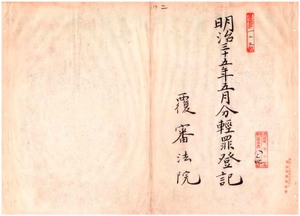 明治三十五年五月分輕罪登記
覆審法院